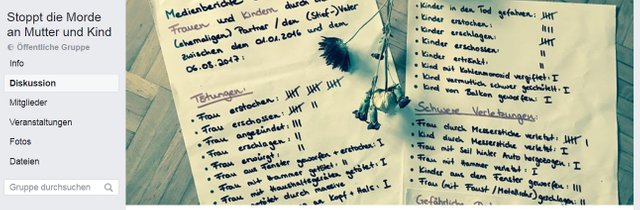 Stoppt die Morde
an Mutter und Kind
Öffentliche Gruppe
Info
Diskussion
Mitglieder
Veranstaltungen
Fotos
Dateien
Gruppe durchsuchen
Medienberichte
Frauen und Kindern durch
(ehemaligen) Partner / den (Stief-)Vater
zwischen dem 01.01.2016 und dem
06.03.2017:
Tötungen:
• Frau erstochen:
• Frau erschossen:
• Frau angezündet: III
• Frau erschlagen: II
• Frau erwürgt: II
• Frau aus Fenster geworfen + erstochen: I
• Frau mit Hammer getötet: II
• Frau mit Haushaltsgeräten getötet: I
durch massive
an Kopf + Hals: I
• Kinder in den Tod gefahren:
• Kinder erstochen:
• Kinder erschlagen:
• Kinder erschossen:
• Kinder ertränkt:
• Kind mit Kohlenmonoxid vergiftet: I
• Kind vermutlich schwer geschüttelt: I
• Kind von Balkon geworfen: I
Schwere Verletzungen:
• Frau durch Messerstiche verletzt:
• Kind durch Messerstiche verletzt: I
• Frau mit Seil hinter Auto hergezogen: I
• Frau mit Hammer verletzt: I
• Kinder aus dem Fenster geworfen: III
• Frau (mit Faust / Metallische) geschlagen:
Gefährliche